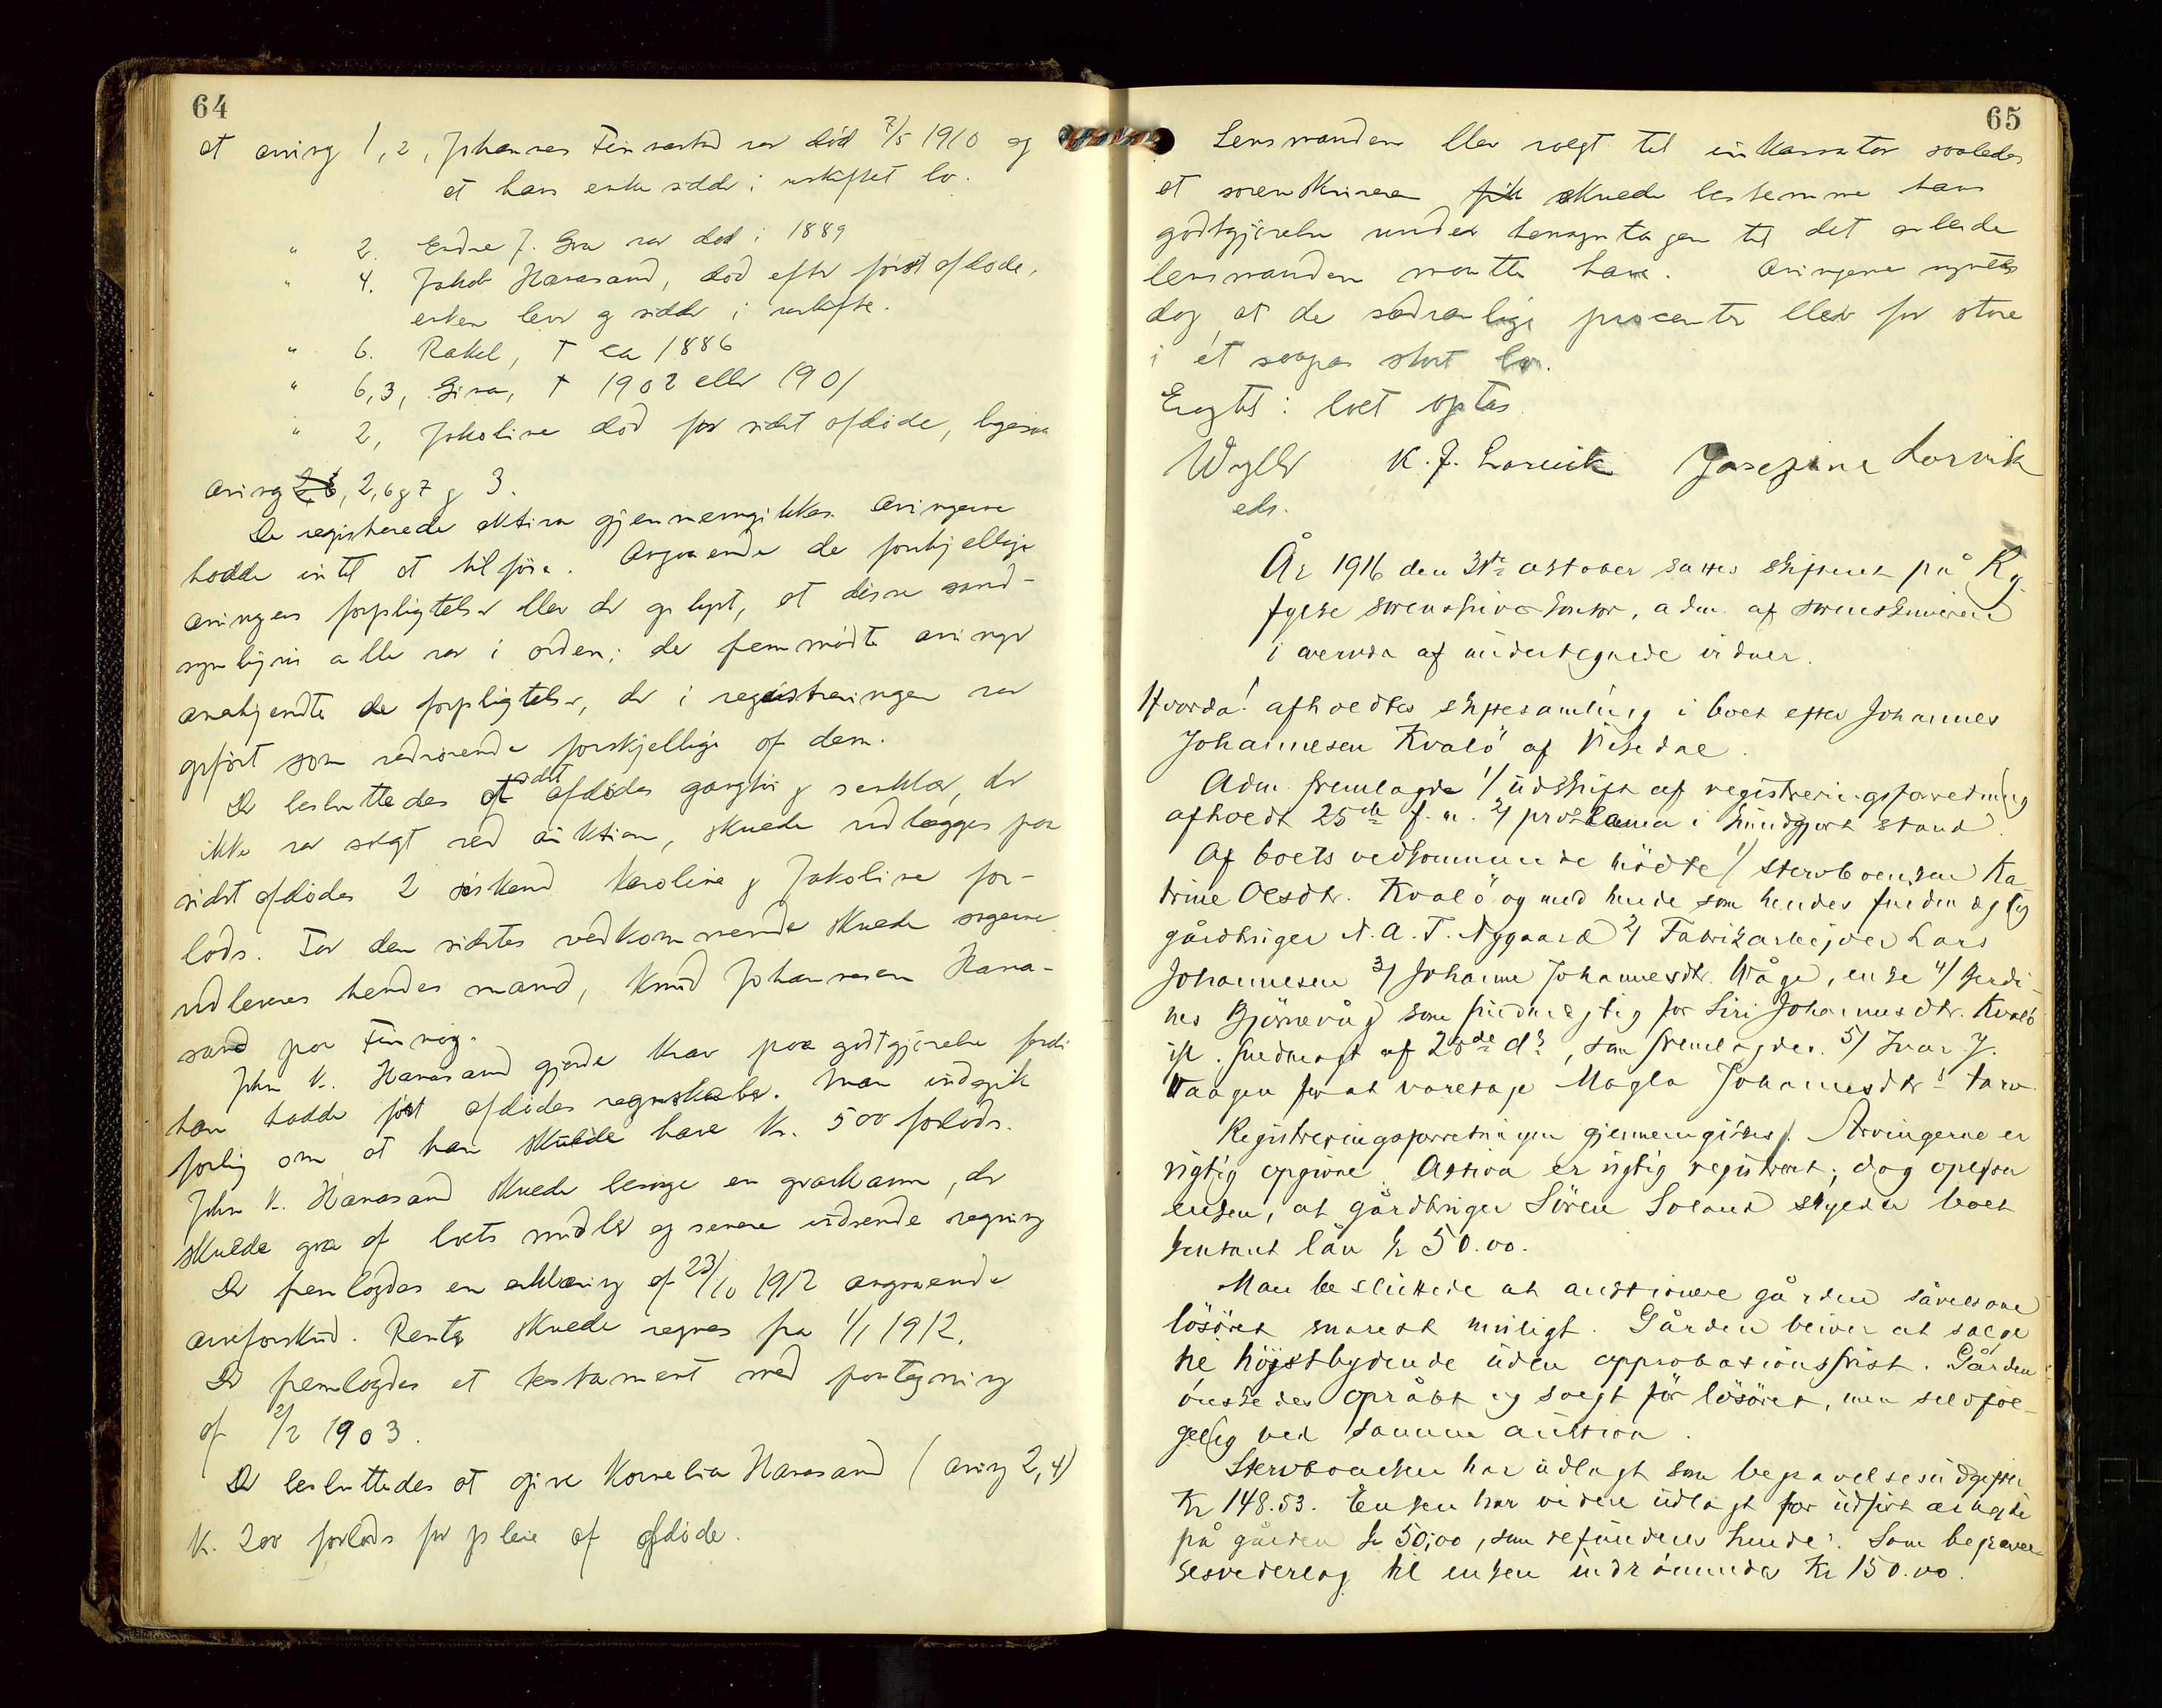 64
at arving 1, 2, Johannes Finnestad var død 7/5 1910 og
at hans enke sidder i uskiftet bo.
" 2. Endre J. Gra var død i 1889
" 4. Jakob Hanasand, død efter først afdøde,
enken lever og sidder i uskifte.
" 6. Rakel, † ca 1886
" 6,3, Sina, † 1902 eller 1901
" 2, Jakoline død før sidst afdøde, ligesaa
arving 2, 6 og 7 og 3.
De registrerede aktiva gjennemgikkes. Arvingerne
hadde intet at tilføie. Angaaende de forskjellige
arvingers forpligtelser blev der oplyst, at disse sand-
synligvis alle var i orden; de fremmødte arvinger
anerkjendte de forpligtelser, der i registreringen var
opført som vedrørende forskjellige af dem.
Det besluttedes at sidst afdødes gangtøi og senklær, der
ikke var solgt ved auktion, skulde udlægges paa
sidst afdødes 2 søskend Karoline og Jakoline for-
lods. For den sidstes vedkommende skulde sagerne
udleveres hendes mand, Knud Johannesen Hana-
sand paa Finnøy.
John K. Hanasand gjorde krav paa godtgjørelse fordi
han hadde ført afdødes regnskaber. Man indgik
forlig om at han skulde have kr. 500 forlods.
John K. Hanasand skulde besørge en gravkam, der
skulde gaa af boets midler og senere indsende regning
Der fremlagdes en erklæring af 23/10 1912 angaaende
arveforskud. Renter skulde regnes fra 1/1 1912.
Der fremlagdes et testament med paategning
af 2/2 1903.
Det besluttedes at give Kornelia Hanasand (arving 2,4)
kr. 200 forlods for pleie af afdøde.
65
Lensmanden blev valgt til inkassator saaledes
at sorenskriveren fik skulde bestemme hans
godtgjørelse under hensyntagen til det arbeide
lensmanden maatte have. Arvingerne syntes
dog at de sædvanlige procenter blev for store
i et saapas stort bo.
Eragtet: boet optas.
Wyller K. J. Lorvik Josefine Lorvik
eds.
År 1916 den 31te oktober sattes skifteret på Ry-
fylke sorenskriverkontor, adm. af sorenskriveren
i overvær af undertegnede vidner.
Hvorda! afholdtes skiftesamling i boet efter Johannes
Johannesen Kvalö af Vikedal.
Adm. fremlagde 1/ udskrift af registreringsforretning
afholdt 25de f. m. 2/ proklama i kundgjort stand.
Af boets vedkommende mödte 1/ stervboenken Ka-
trine Olsdtr. Kvalö og med hende som hendes fuldmægtig
gårdbruger N. A. T. Nygaard 2/ Fabrikarbejder Lars
Johannesen 3/ Johanne Johannesdtr. Våge, enke 4/ Gerdi-
nes Björnevåg som fuldmægtig for Siri Johannesdtr. Kvalö
ifl. fuldmagt af 28de ds, som fremlagdes. 5/ Ivar J.
Vaagen for at varetage Magla Johannesdtrs tarv.
Registreringsforretningen gjennemgikkes. Arvingerne er
rigtig opgivne. Aktiva er rigtig registreret; dog oplyser
enken, at gårdbruger Sören Soland skylder boet
kontant lån kr 50.00.
Man besluttede at auktionere gården såvelsom
lösöret snarest muligt. Gården bliver at sælge
til höjstbydende uden approbationsfrist. Gården
önskedes opråbt og solgt för lösöret, men selvföl-
gelig ved samme auktion.
Stervboenken har udlagt som begravelsesudgifter
Kr 148.53. Enken har videre udlagt for udfört arbejde
på gården kr 50,00, som refunderes hende. Som begravel-
sesvederlag til enken indrömmedes Kr 150.00.